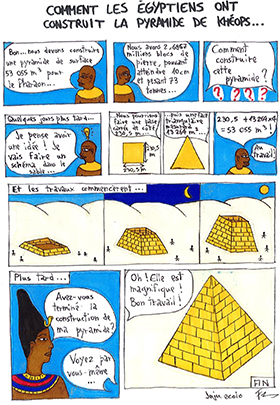 COMMENT LES ÉGYPTIENS ONT
CONSTRUIT LA PYRAMIDE DE KHÉOPS...
Bon... nous devons construire
une pyramide de surface
53 055 m³ pour
le Pharaon...
Nous avons 2,6867
millions blocs de
pierre, pouvant
atteindre 10cm
et pesant 73
tonnes...
Comment
construire
cette
pyramide?
????
Quelques jours plus tard...
Je pense avoir
une idée! Je
vais faire un
schéma dans le
sable...
Nous pourrions
faire une base
carrée de côté
230,5 m
230,5
m
230,5 m
...puis une face
triangulaire
230,5
= 53 055 m³!
Au
travail!
Et les travaux commencèrent...
Plus tard...
Avez-vous
terminé la
construction de
ma pyramide?
Voyez par
vous-même
...
Oh! Elle est
magnifique!
Bon travail!
FIN